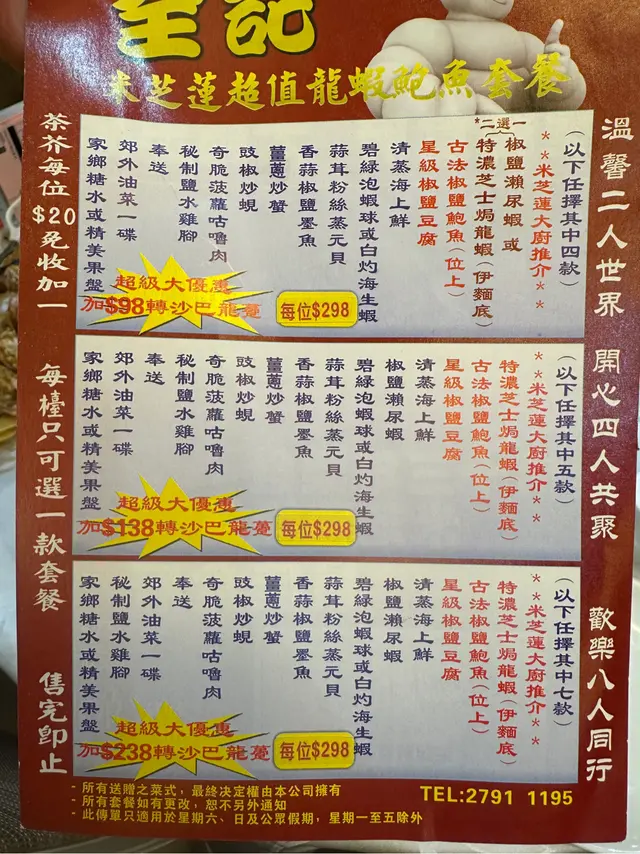 全記
米芝蓮超值龍蝦鮑魚套餐
溫馨二人世界
(以下任擇其中四款)
**米芝蓮大廚推介**
*二選一
椒鹽瀨尿蝦 或
特濃芝士焗龍蝦(伊麵底)
古法椒鹽鮑魚(位上)
星級椒鹽豆腐
清蒸海上鮮
碧綠泡蝦球或白灼海生蝦
蒜茸粉絲蒸元貝
香蒜椒鹽墨魚
薑蔥炒蟹
豉椒炒蜆
奇脆菠蘿咕嚕肉
秘制鹽水雞腳
奉送
郊外油菜一碟
家鄉糖水或精美果盤
超級大優惠
加$98轉沙巴龍躉
每位$298
開心四人共聚
(以下任擇其中五款)
**米芝蓮大廚推介**
特濃芝士焗龍蝦(伊麵底)
古法椒鹽鮑魚(位上)
星級椒鹽豆腐
清蒸海上鮮
椒鹽瀨尿蝦
碧綠泡蝦球或白灼海生蝦
蒜茸粉絲蒸元貝
香蒜椒鹽墨魚
薑蔥炒蟹
豉椒炒蜆
奇脆菠蘿咕嚕肉
秘制鹽水雞腳
奉送
郊外油菜一碟
家鄉糖水或精美果盤
超級大優惠
加$138轉沙巴龍躉
每位$298
歡樂八人同行
(以下任擇其中七款)
**米芝蓮大廚推介**
特濃芝士焗龍蝦(伊麵底)
古法椒鹽鮑魚(位上)
星級椒鹽豆腐
清蒸海上鮮
椒鹽瀨尿蝦
碧綠泡蝦球或白灼海生蝦
蒜茸粉絲蒸元貝
香蒜椒鹽墨魚
薑蔥炒蟹
豉椒炒蜆
奇脆菠蘿咕嚕肉
奉送
郊外油菜一碟
秘制鹽水雞腳
家鄉糖水或精美果盤
超級大優惠
加$238轉沙巴龍躉
每位$298
茶芥每位$20免收加一
每檯只可選一款套餐
售完即止
- 所有送贈之菜式，最終決定權由本公司擁有
- 所有套餐如有更改，恕不另外通知
- 此傳單只適用於星期六、日及公眾假期，星期一至五除外
TEL:2791 1195